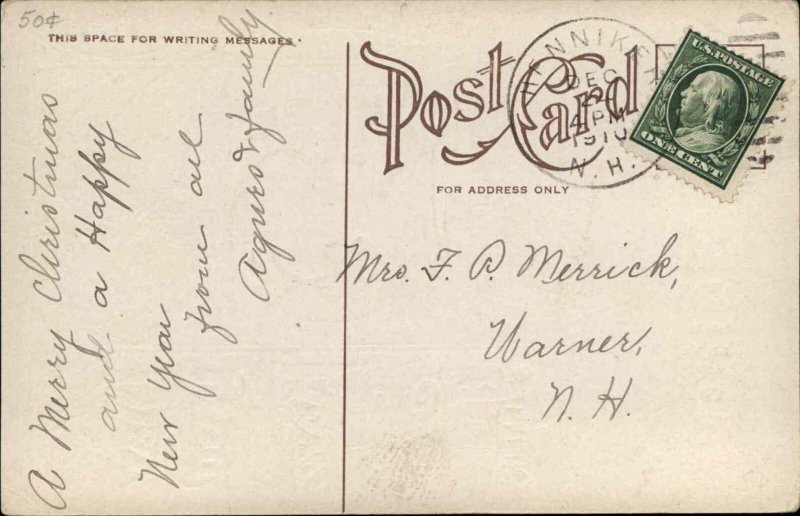 50¢
THIS SPACE FOR WRITING MESSAGES.
A Merry Christmas
and a Happy
New Year
from all
& family
Post Card
FOR ADDRESS ONLY
HENNIKER
DEC
4 PM
1910
N. H.
U.S. POSTAGE
ONE CENT
Mrs. F. P. Merrick,
Warner,
N. H.